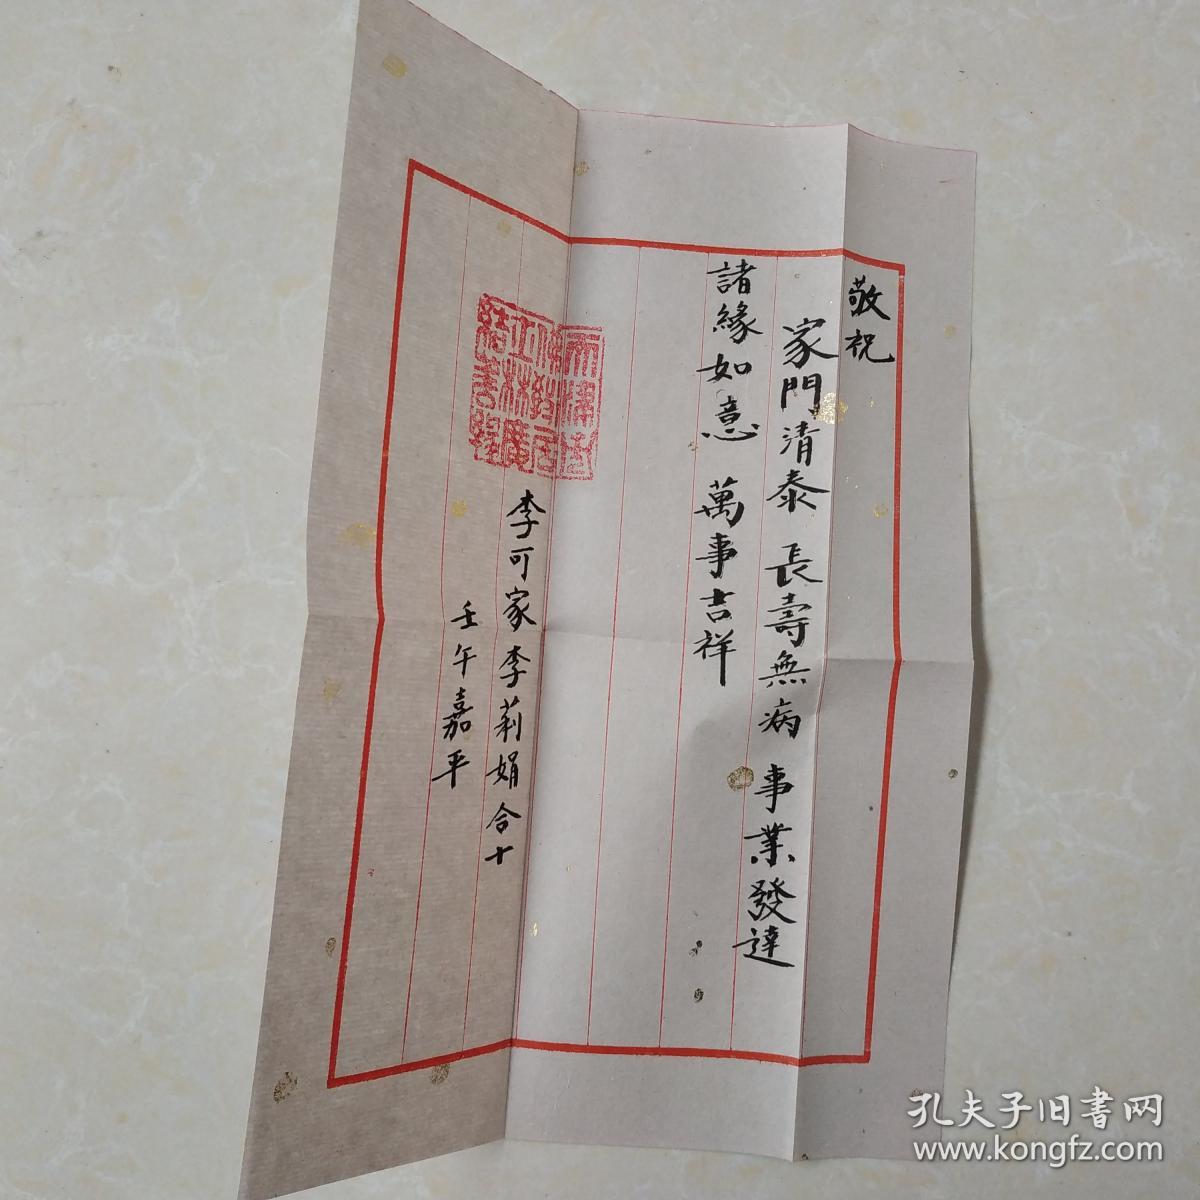 敬祝
家門清泰 長壽無病 事業發達
諸緣如意 萬事吉祥
李可家 李莉娟 合十
壬午嘉平
孔夫子旧书网
www.kongfz.com